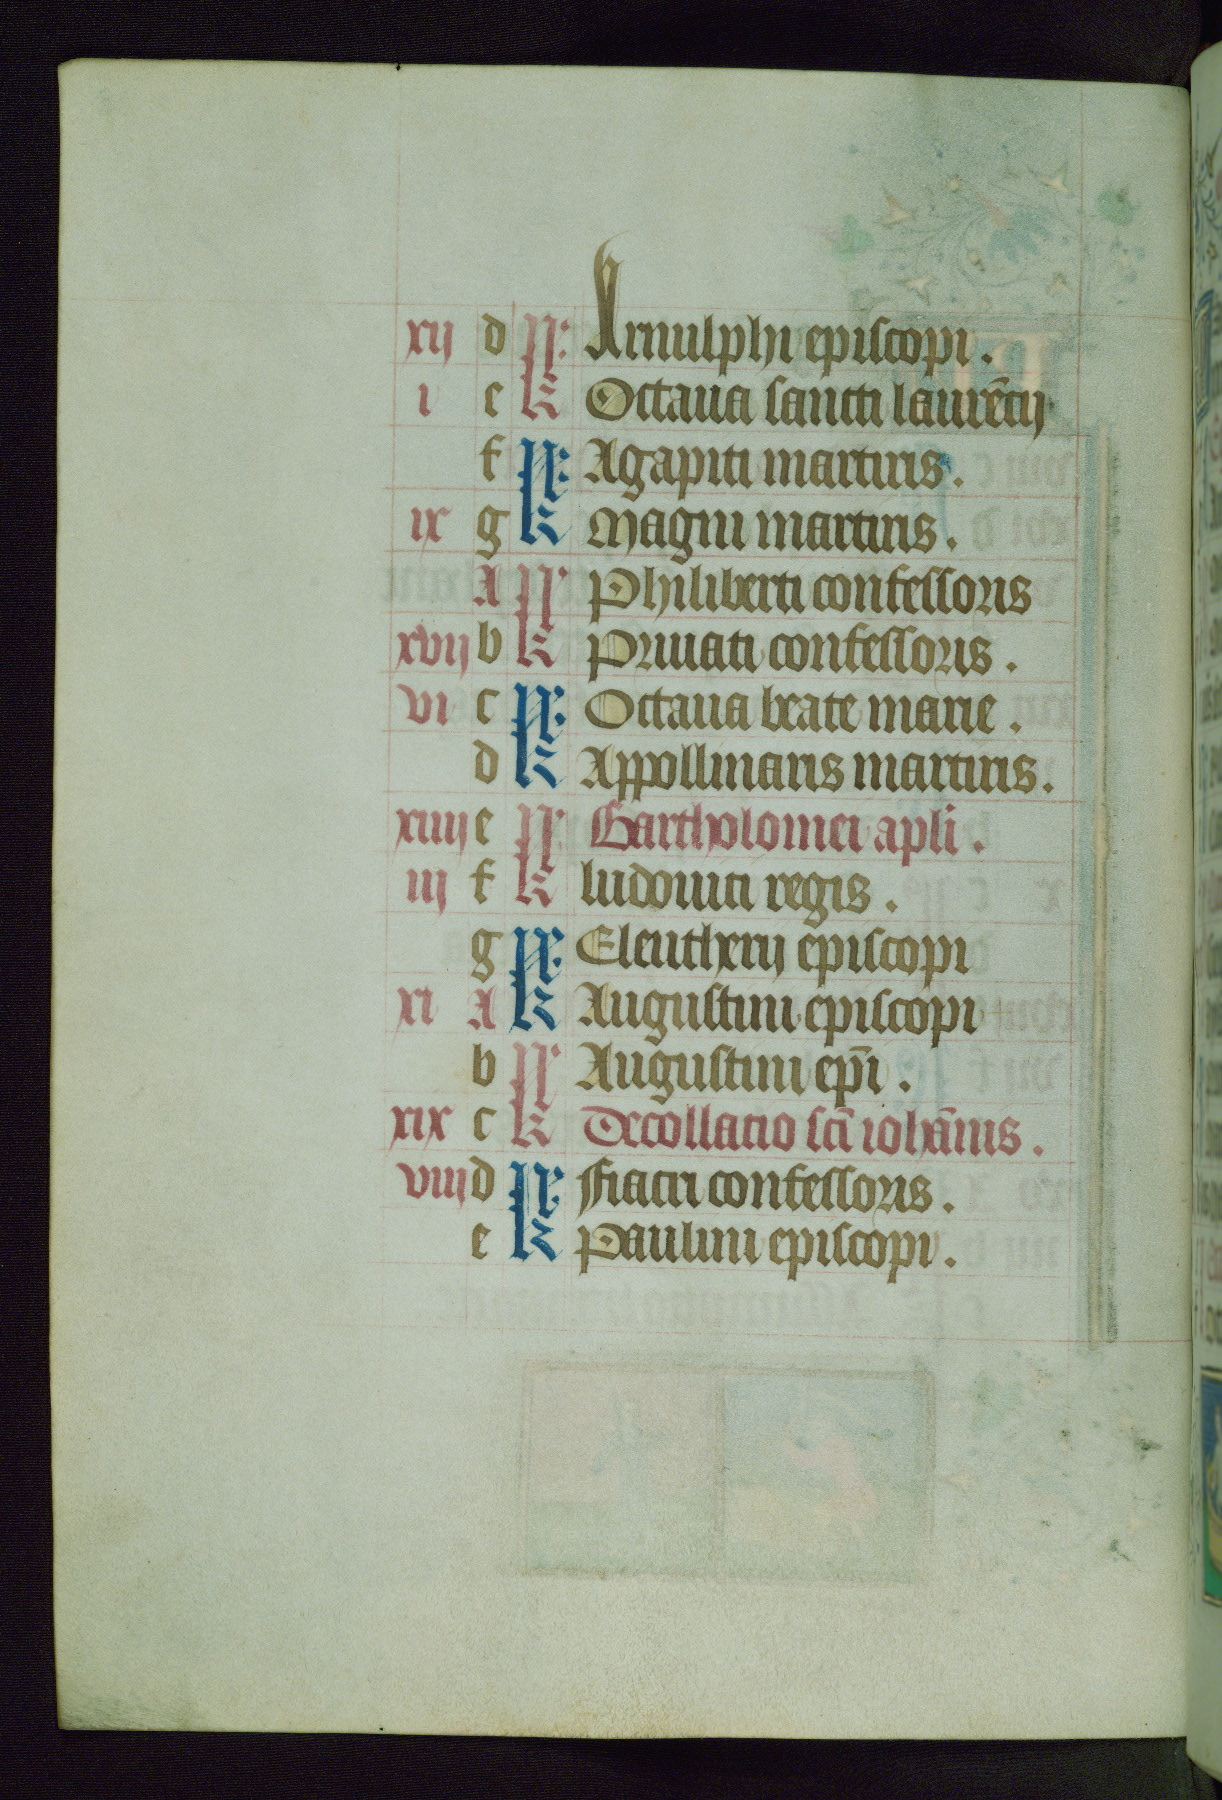 xij d Arnulphi episcopi.
i e k Octaua sancti laurẽcij
f Agapiti martiris.
ix g k Magni martiris.
A Philiberti confessoris
xvij b k Priuati confessoris.
vi c Octaua beate marie.
d k Appollinaris martiris.
xiiij e Bartholomei apli.
iij f k ludouici regis.
g Eleutherij episcopi
xi A k Augustini episcopi
b Augustini ep̃i.
xix c k Decollatio sc̃i iohãnis.
viij d Fiacri confessoris.
e k Paulini episcopi.